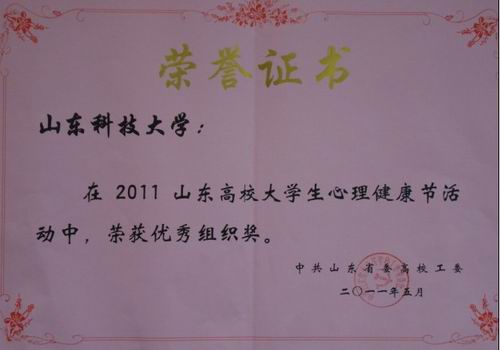 荣誉证书
山东科技大学：
在 2011 山东高校大学生心理健康节活
动中，荣获优秀组织奖。
中共山东省委高校工委
二〇一一年五月